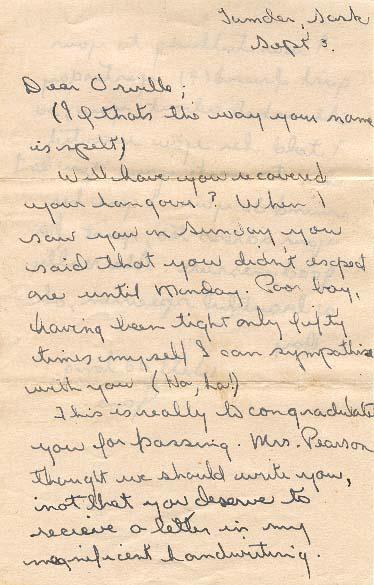 Tumder, Sask
Sept 3.
Dear Orville;
(If thats the way your name
is spelt)
Well have you recovered
your hangover? When I
saw you on Sunday you
said that you didn't expect
one until Monday. Poor boy,
having been tight only fifty
times myself I can sympathise
with you (Ha, ha!)
This is really to congradulate
you for passing. Mrs. Pearson
thought we should write you,
not that you deserve to
recieve a letter in my
magnificent handwriting.